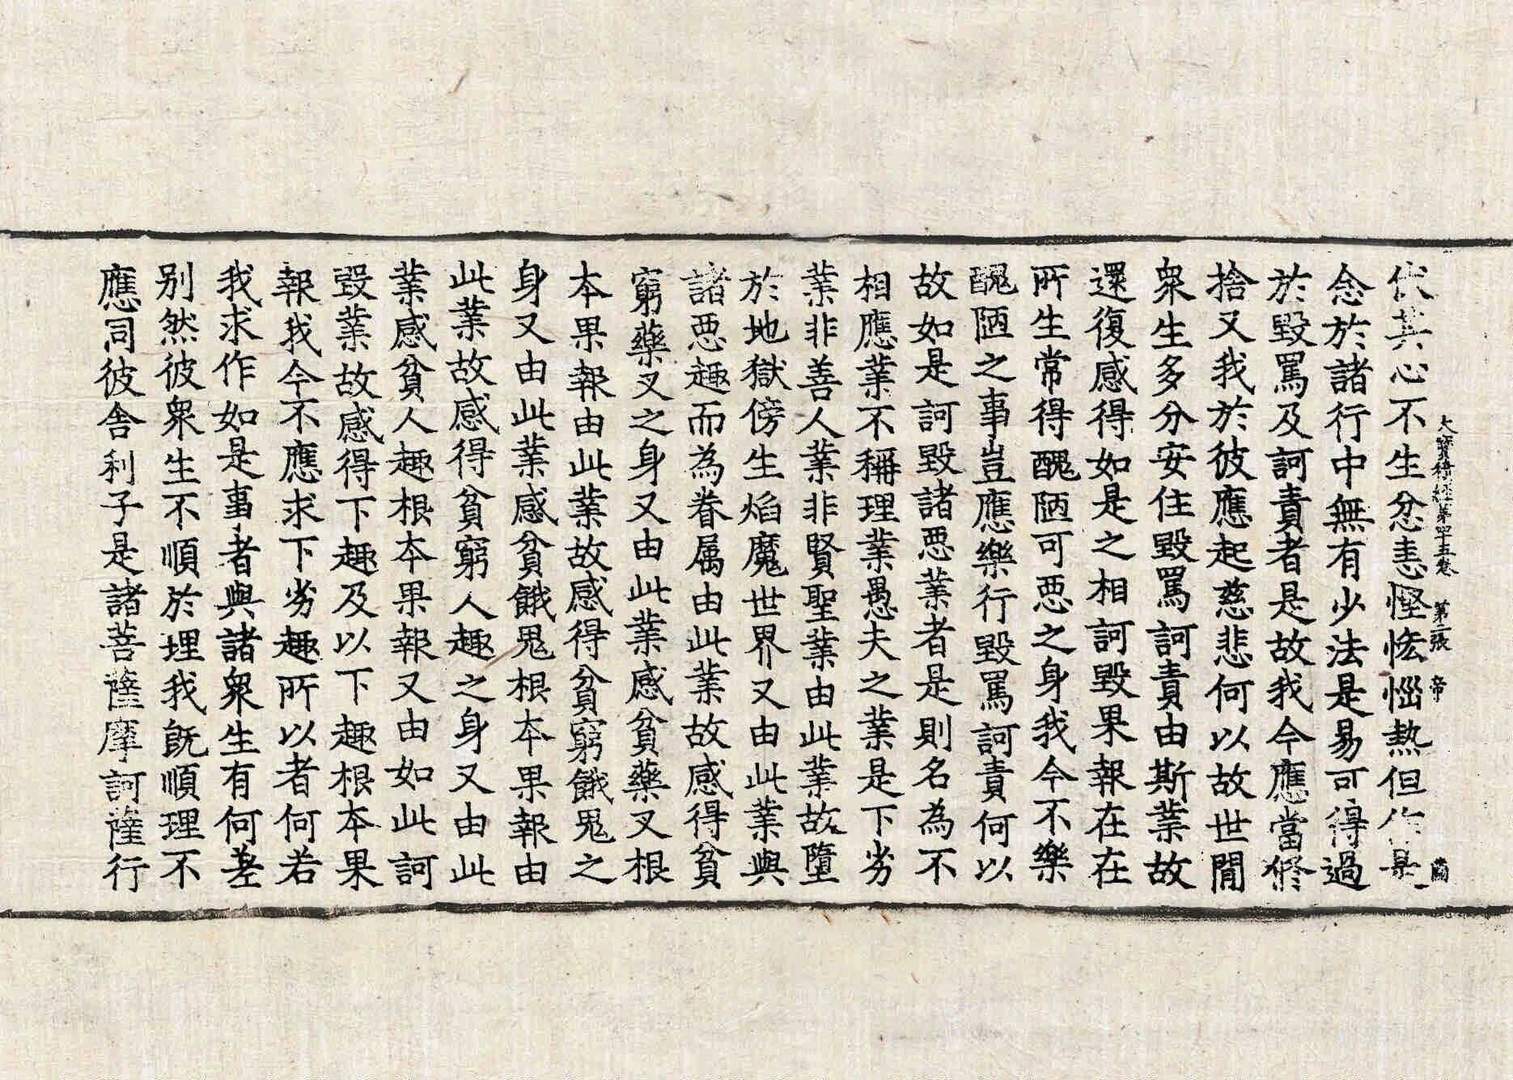 大寶積經第四十五卷 第二張 帝 蘭
伏其心不生忿恚慳悋惱熱但作是
念於諸行中無有少法是易可得過
於毀罵及訶責者是故我今應當修
捨又我於彼應起慈悲何以故世間
衆生多分安住毀罵訶責由斯業故
還復感得如是之相訶毀果報在在
所生常得醜陋可惡之身我今不樂
醜陋之事豈應樂行毀罵訶責何以
故如是訶毀諸惡業者是則名為不
相應業不稱理業愚夫之業是下劣
業非善人業非賢聖業由此業故墮
於地獄傍生焰魔世界又由此業與
諸惡趣而為眷屬由此業故感得貧
窮藥叉之身又由此業感貧藥叉根
本果報由此業故感得貧窮餓鬼之
身又由此業感貧餓鬼根本果報由
此業故感得貧窮人趣之身又由此
業感貧人趣根本果報又由如此訶
毀業故感得下趣及以下趣根本果
報我今不應求下劣趣所以者何若
我求作如是事者與諸衆生有何差
別然彼衆生不順於理我旣順理不
應同彼舍利子是諸菩薩摩訶薩行